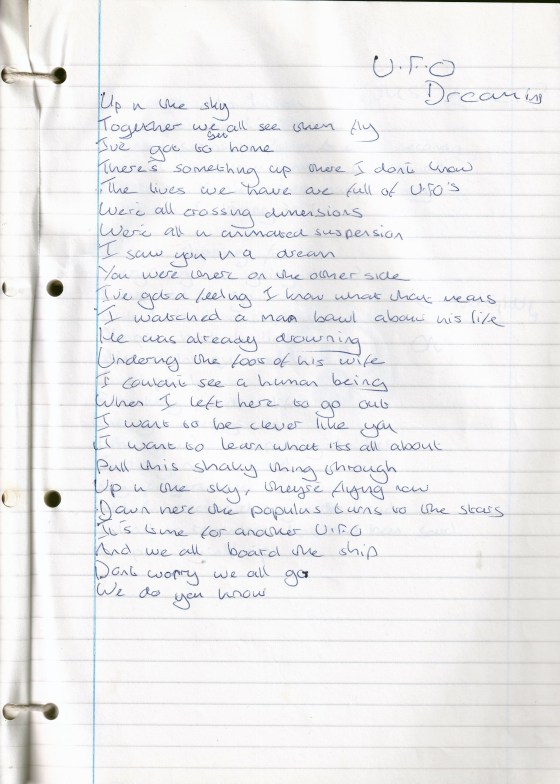 U.F.O
Dreaming
Up n the sky
Together we all see them fly
I've got to get home
There's something up there I don't know
The lives we have are full of U.F.O's
We're all crossing dimensions
We're all n animated suspension
I saw you n a dream
You were there on the other side
I've got a feeling I know what that means
I watched a man bawl about his life
He was already drowning
Under the foot of his wife
I couldn't see a human being
When I left here to go out
I want to be clever like you
I want to learn what its all about
Pull this shaky thing through
Up n the sky, they're flying now
Down here the populus turns to the stars
It's time for another U.F.O
And we all board the ship
Dont worry we all go
We do you know